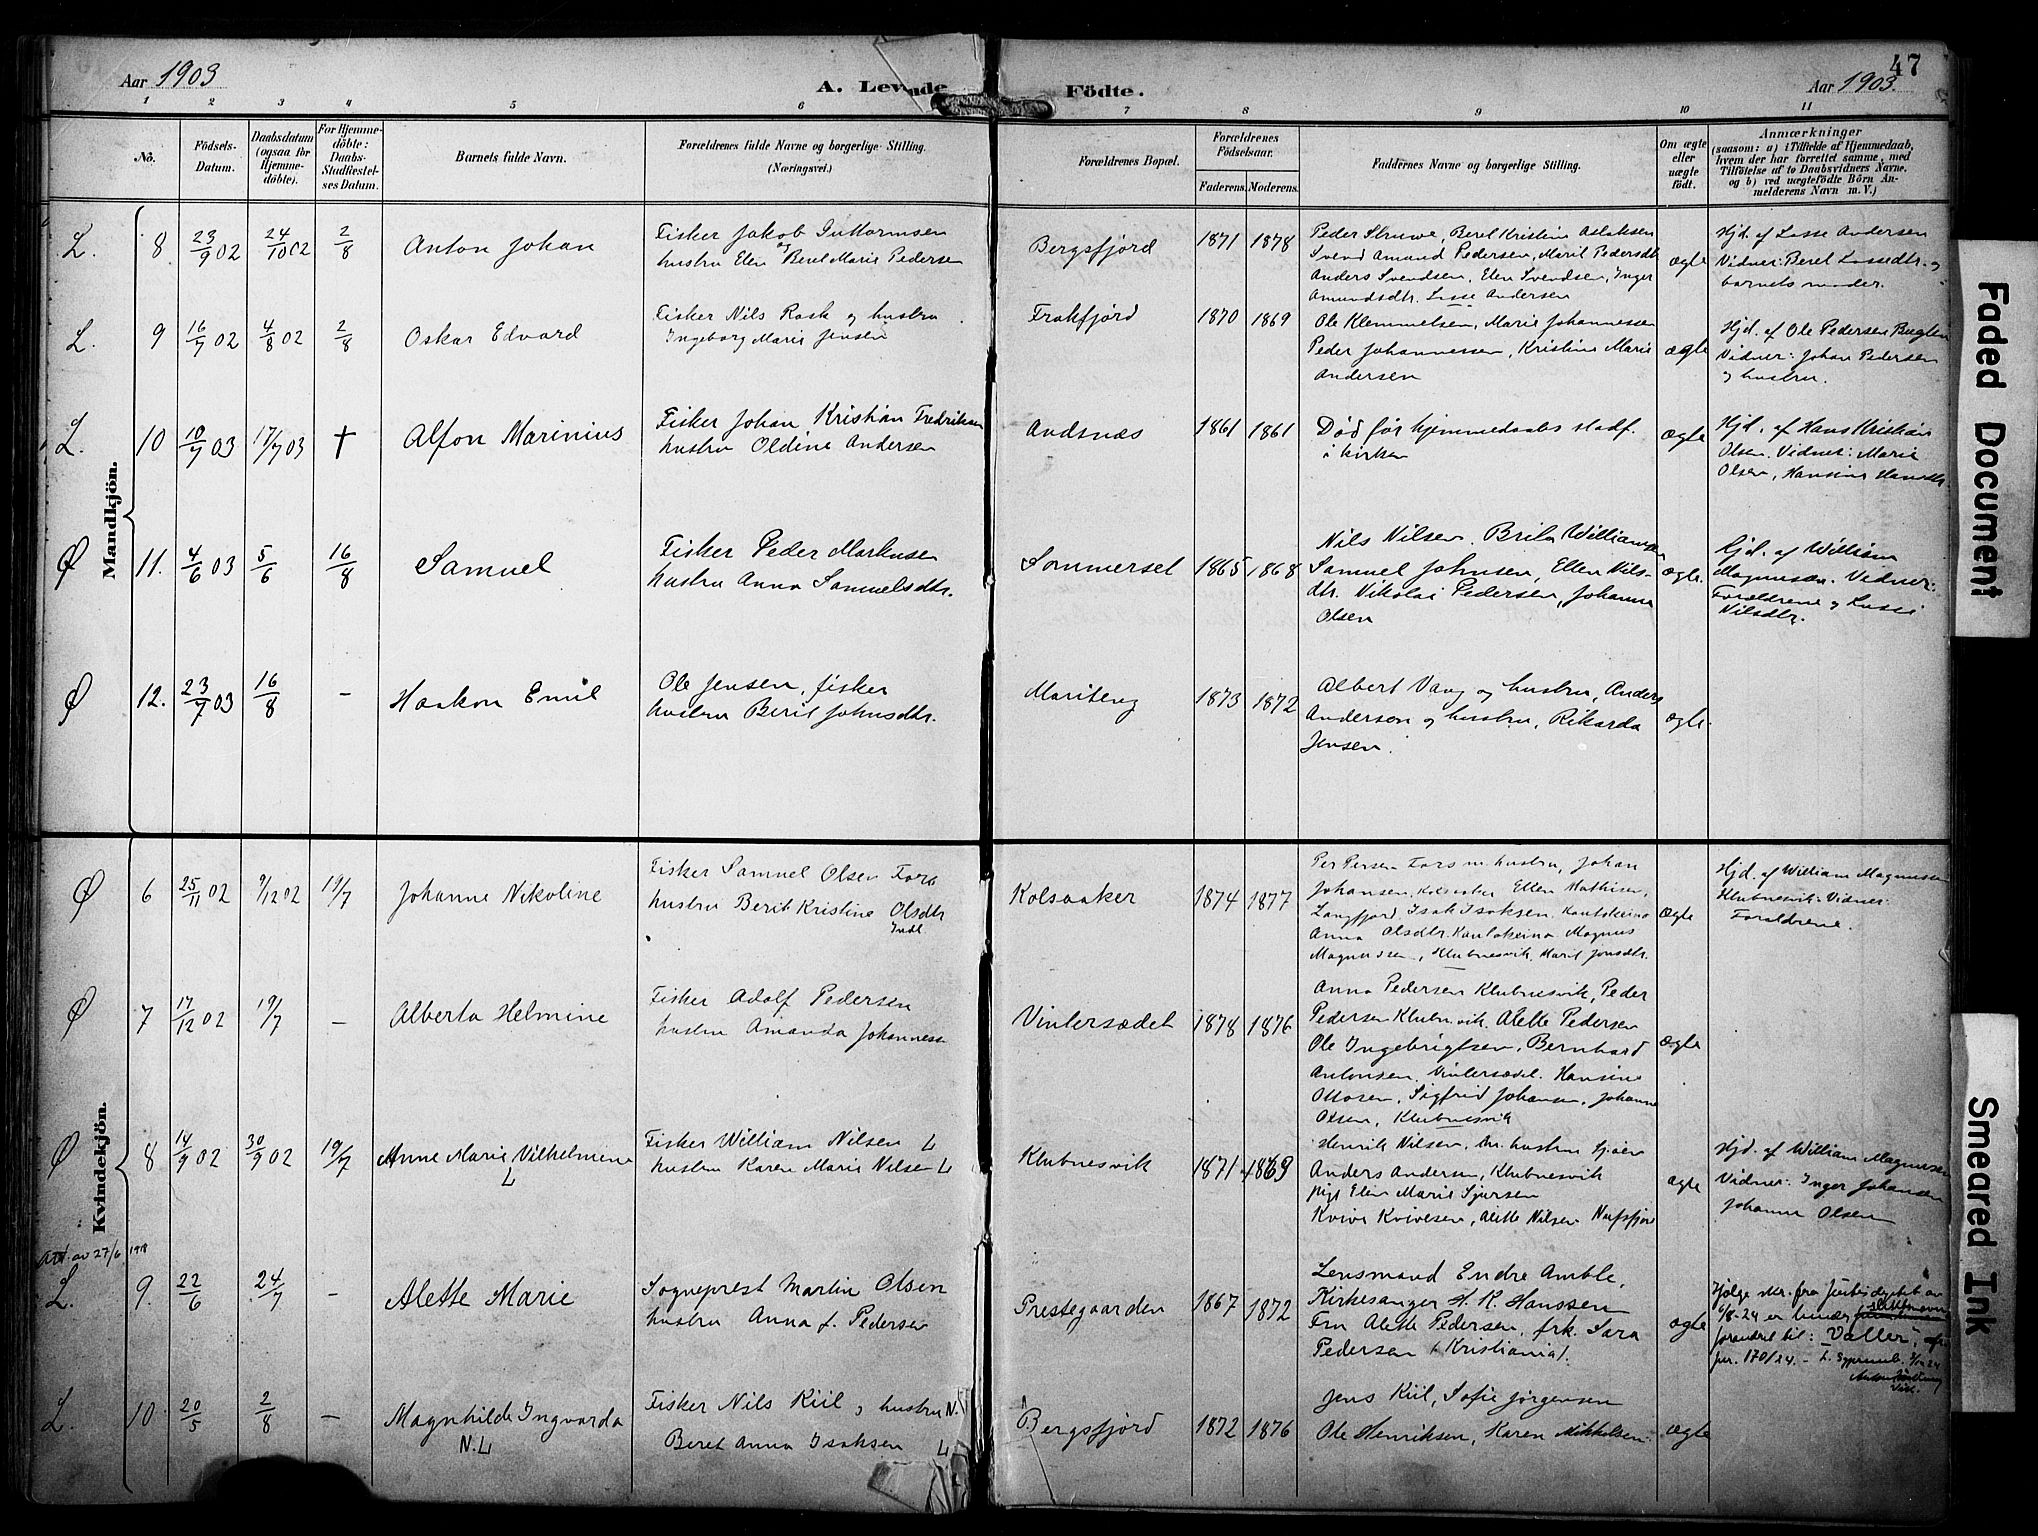 47
Aar 1903
A. Levende
Födte.
Aar 1903.
1 2 3 4 5 6 7 8 9 10 11
No.
Födsels-Datum.
Daabsdatum (ogsaa for Hjemme-döbte).
For Hjemme-döbte: Daabs-Stadfæstel-ses Datum.
Barnets fulde Navn.
Forældrenes fulde Navne og borgerlige Stilling.
(Næringsvei.)
Forældrenes Bopæl.
Forældrenes Födselsaar.
Faderens. Moderens.
Faddernes Navne og borgerlige Stilling.
Om ægte eller uægte födt.
Anmærkninger
(saasom: a) i Tilfælde af Hjemmedaab,
hvem der har forrettet samme, med
Tilföielse af to Daabsvidners Navne,
og b) ved uægtefödte Börn An-
melderens Navn m. V.)
Mandkjön.
L. 8 23/9 02 24/10 02 2/8 Anton Johan
Fisker Jakob Guttormsen
og hustru Elen Beret Marie Pedersen
Bergsfjord 1871 1878
Peder Struwe, Beret Kristin Aslaksen
Svend Amund Pedersen, Marit Pedersdt
Anders Svendsen, Elen Svendsen, Inger
Amundsdtr. Lasse Andersen
ægte
Hjd. af Lasse Andersen
Vidner: Beret Lassedtr. og
barnets moder.
L. 9 16/7 02 4/8 02 2/8 Oskar Edvard
Fisker Nils Rask og hustru
Ingeborg Marie Jensen
Frakfjord 1870 1869
Ole Klemmetsen, Marie Johannessen
Peder Johannessen, Kristine Marie
Andersen
ægte
Hjd. af Ole Pedersen
Vidner: Johan Pedersen
og hustru.
L. 10 10/7 03 17/7 03 † Alfon Marinius
Fisker Johan Kristian Fredriksen
hustru Oldine Andersen
Andsnæs 1861 1861
Død før hjemmedaabs stadf.
i kirken
ægte
Hjd. af Hans Kristian
Olsen. Vidner: Marie
Olsen, Hansine Hansdtr.
Ø 11. 4/6 03 5/6 16/8 Samuel
Fisker Peder Markusen
hustru Anna Samuelsdtr.
Sommerset 1865 1868
Nils Nilsen. Brita Williamsen
Samuel Johnsen, Ellen Nils-
dtr. Nikolai Pedersen, Johanna
Olsen
ægte.
Hjd. af William
Magnussen. Vidner:
Forældrene og
Nilsdtr.
Ø 12. 23/7 03 16/8 - Haakon Emil
Ole Jensen, fisker
hustru Berit Johnsdtr.
Mariteng 1873 1872
Albert Vang og hustru, Anders
Anderson og hustru, Rikarda
Jensen.
ægte.
Kvindekjön.
Ø 6 25/11 02 9/12 02 19/7 Johanne Nikoline
Fisker Samuel Olsen Fors
hustru Berit Kristine Olsdtr
Kolsaaker 1874 1877
Per Persen Fors m. hustru, Johan
Johansen, Kolsaaker Ellen Mathisen,
Langfjord Isak Isaksen, Kautokeino
Anna Olsdtr. Kautokeino Magnus
Magnussen, Klubnesvik. Marit Jonsdtr.
ægte
Hjd. af William Magnussen
Klubnesvik. Vidner:
Forældrene.
Ø 7 17/12 02 19/7 - Alberta Helmine
Fisker Adolf Pedersen
hustru Amanda Johannessen
Vintersædet 1878 1876
Anna Pedersen Klubnesvik, Peder
Pedersen Klubnesvik. Alette Pedersen
Ole Ingebrigtsen, Bernhard
Antonsen Vintersædet. Hansine
Ottosen, Sigfrid Johansen, Johanne
Olsen, Klubnesvik
ægte
Ø 8 14/9 02 30/9 02 19/7 Anne Marie Vilhelmine
L
Fisker William Nilsen L
hustru Karen Marie Nilsen L
Klubnesvik 1871 1869
Henrik Nilsen, m. hustru
Anders Andersen, Klubnesvik
pige Elen Marie Sjursen
Kvive Kvivesen, Alette Nilsen
ægte
Hjd. af William Magnussen
Vidner: Inger Johansen
Johanne Olsen
Att. av 27/6 1918
L. 9. 22/6 24/7 - Alette Marie
Sogneprest Martin Olsen
hustru Anna f. Pedersen
Prestegaarden 1867 1872
Lensmand Endre Amble,
Kirkesanger H. K. Hanssen
Fru Alette Pedersen, frk. Sara
Pedersen (Kristiania).
ægte
Ifølge skr. fra Justisdeptet av
6/8-24 er hendes slektsnavn
forandret til: Valler, cfr
jnr. 170/24.
L. 10. 20/5 2/8 - Magnhilde Ingvarda
N.L
Fisker Nils Kiil og hustru N.
Beret Anna Isaksen L
Bergsfjord 1872 1876
Jens Kiil, Sofie Jørgensen
Ole Henriksen, Karen Mikkelsen.
ægte
Faded Document
Smeared Ink